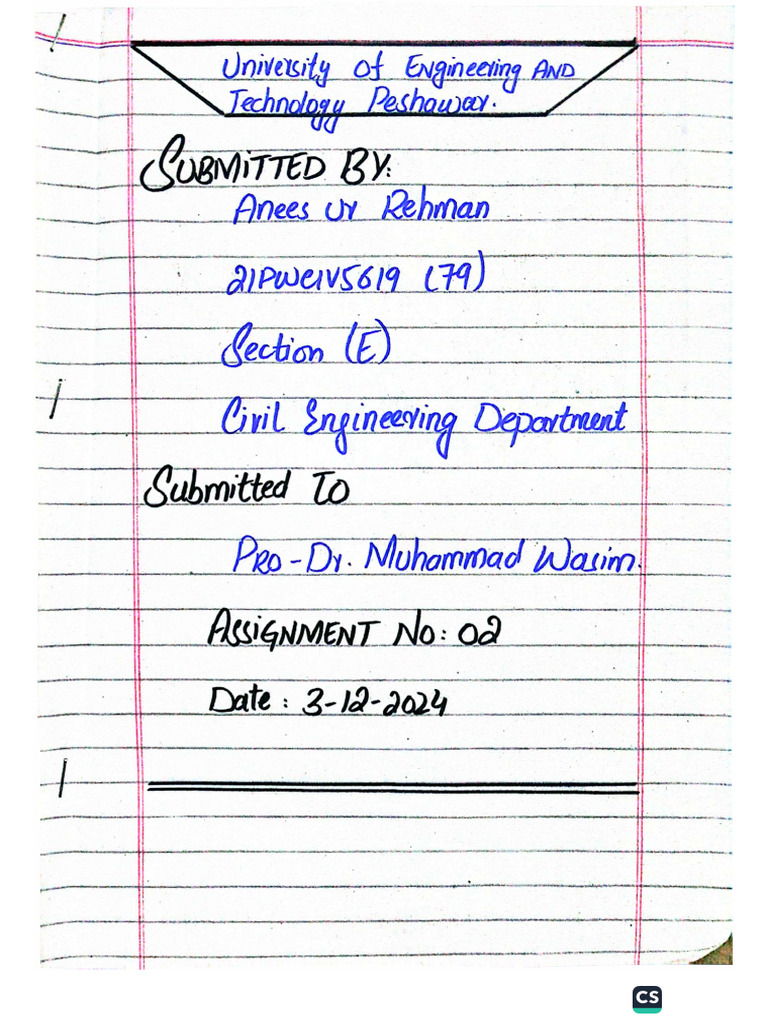 University Of Engineering AND
Technology Peshawar.
SUBMITTED BY:
Anees Ur Rehman
21PWCIV5619 (79)
Section (E)
Civil Engineering Department
Submitted To
PRO-Dr. Muhammad Wasim.
ASSIGNMENT No: 02
Date : 3-12-2024
CS